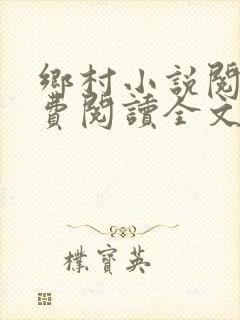 鄉村小説閱
費閱讀全文
樸寶英